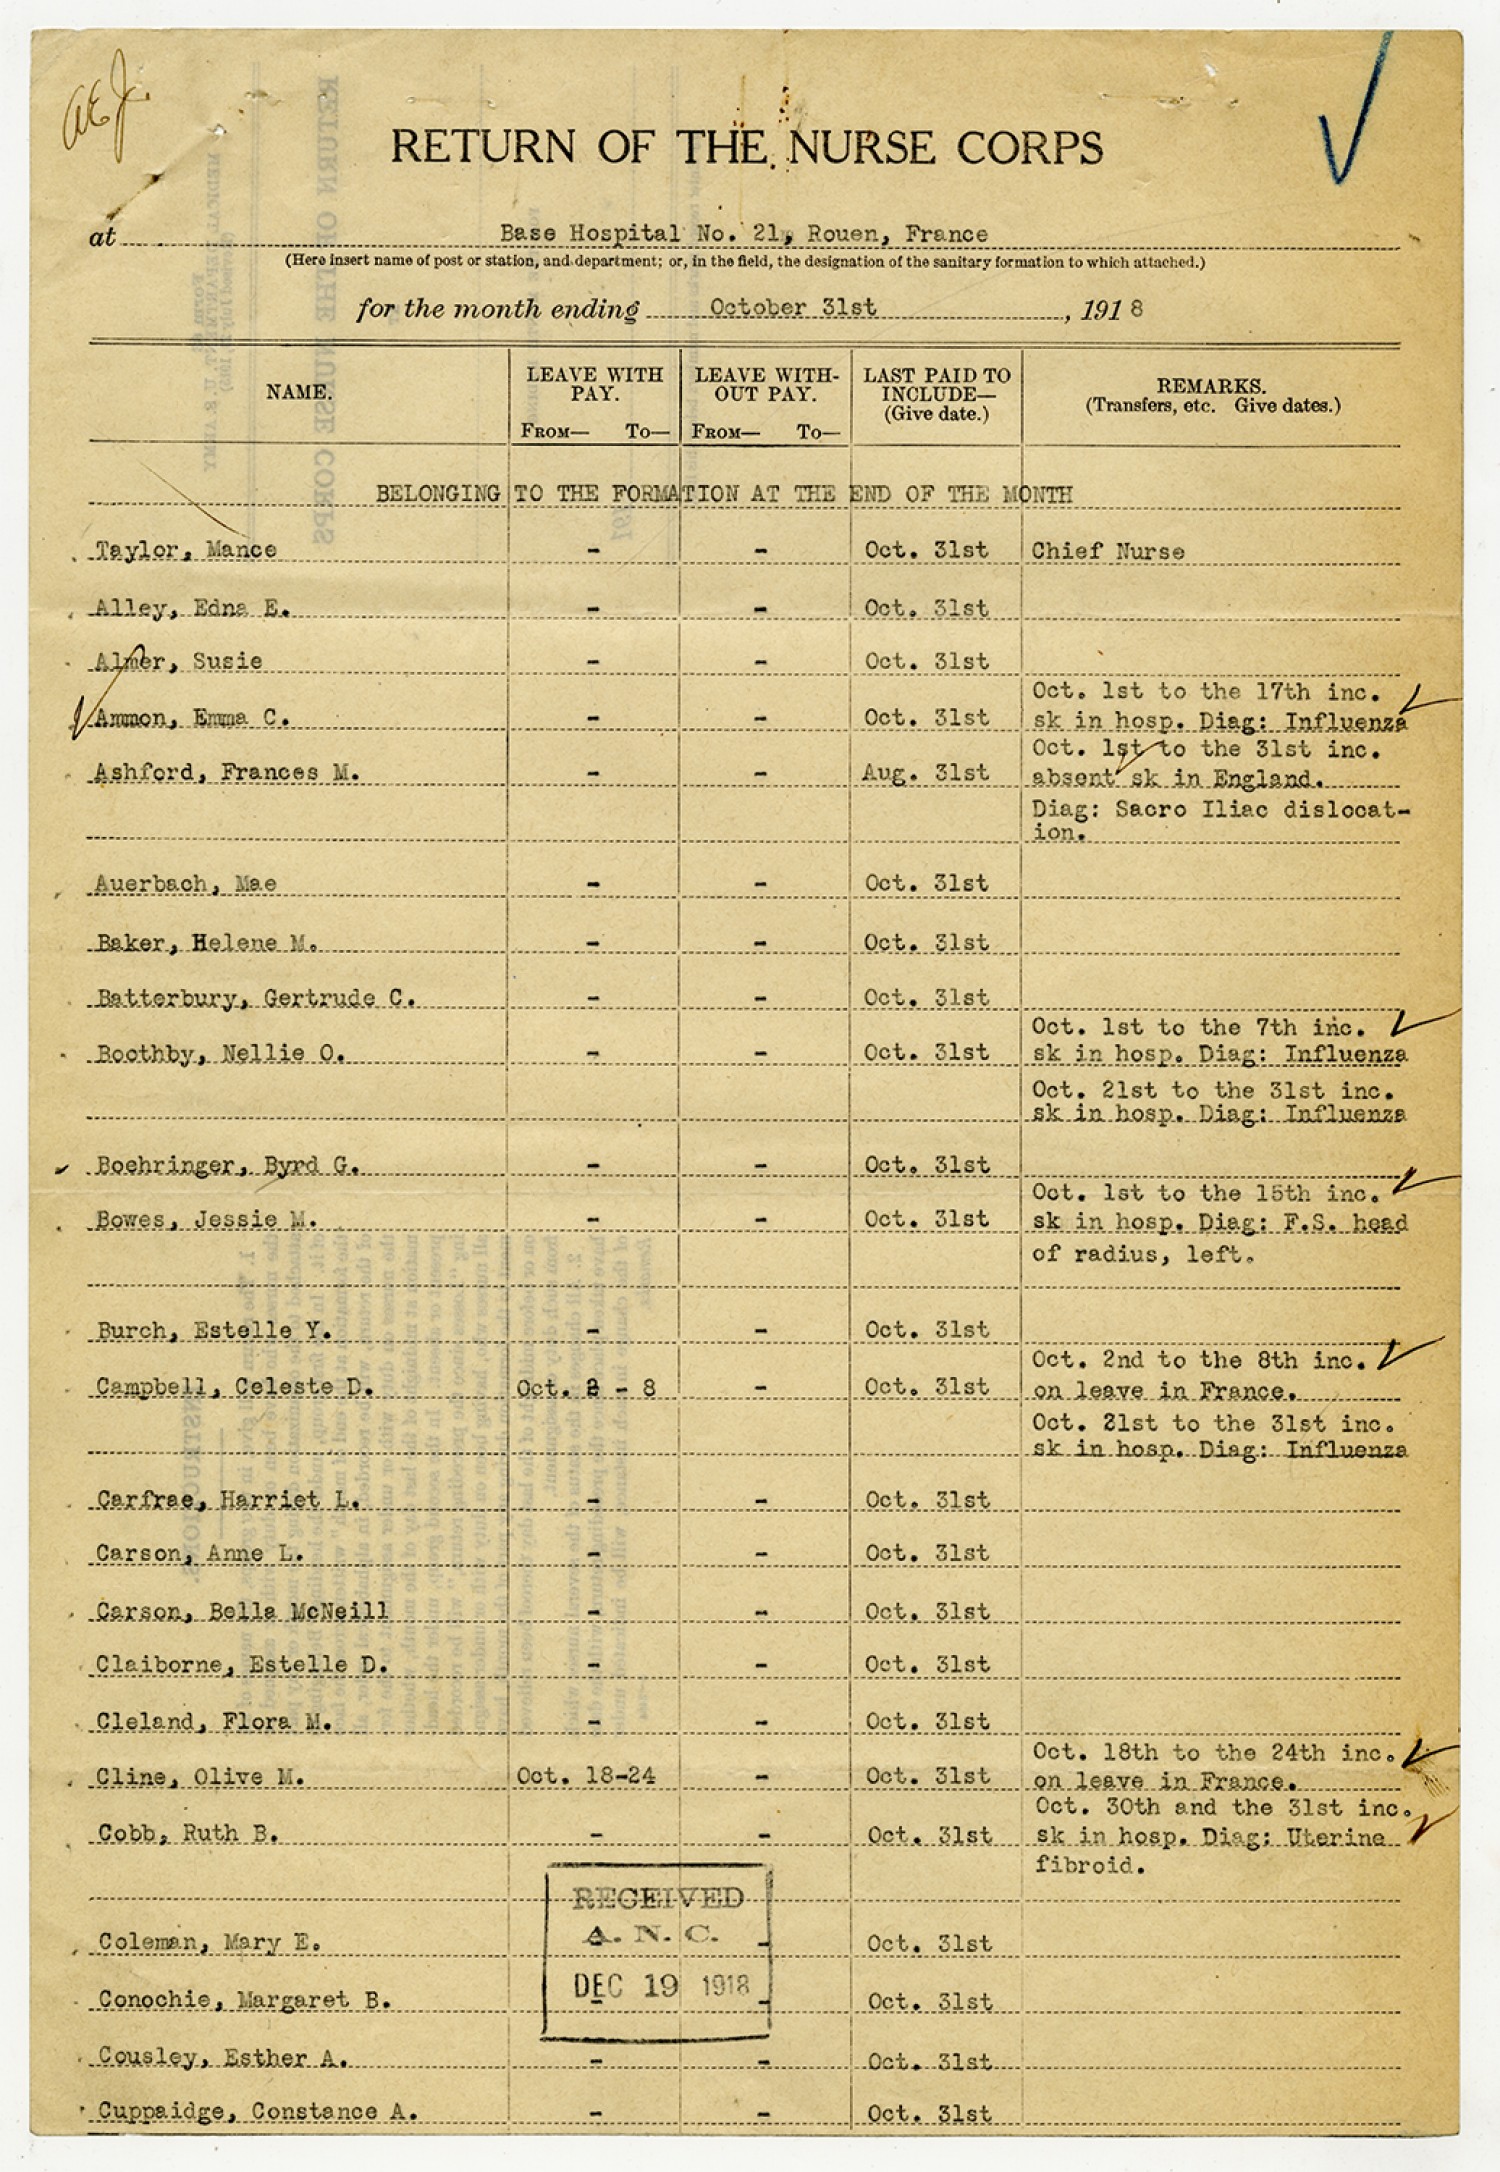 AEJ.
RETURN OF THE NURSE CORPS
at Base Hospital No. 21, Rouen, France
(Here insert name of post or station, and department; or, in the field, the designation of the sanitary formation to which attached.)
for the month ending October 31st, 1918
NAME. LEAVE WITH PAY. FROM— TO— LEAVE WITH-OUT PAY. FROM— TO— LAST PAID TO INCLUDE— (Give date.) REMARKS. (Transfers, etc. Give dates.)
BELONGING TO THE FORMATION AT THE END OF THE MONTH
Taylor, Mance - - Oct. 31st Chief Nurse
Alley, Edna E. - - Oct. 31st
Almer, Susie - - Oct. 31st
Oct. 1st to the 17th inc.
Ammon, Emma C. - - Oct. 31st sk in hosp. Diag: Influenza
Oct. 1st to the 31st inc.
Ashford, Frances M. - - Aug. 31st absent sk in England.
Diag: Sacro Iliac dislocat-
ion.
Auerbach, Mae - - Oct. 31st
Baker, Helene M. - - Oct. 31st
Batterbury, Gertrude C. - - Oct. 31st
Oct. 1st to the 7th inc.
Boothby, Nellie O. - - Oct. 31st sk in hosp. Diag: Influenza
Oct. 21st to the 31st inc.
sk in hosp. Diag: Influenza
Boehringer, Byrd G. - - Oct. 31st
Oct. 1st to the 15th inc.
Bowes, Jessie M. - - Oct. 31st sk in hosp. Diag: F.S. head
of radius, left.
Burch, Estelle Y. - - Oct. 31st
Oct. 2nd to the 8th inc.
Campbell, Celeste D. Oct. 2 - 8 - Oct. 31st on leave in France.
Oct. 21st to the 31st inc.
sk in hosp. Diag: Influenza
Carfrae, Harriet L. - - Oct. 31st
Carson, Anne L. - - Oct. 31st
Carson, Bella McNeill - - Oct. 31st
Claiborne, Estelle D. - - Oct. 31st
Cleland, Flora M. - - Oct. 31st
Oct. 18th to the 24th inc.
Cline, Olive M. Oct. 18-24 - Oct. 31st on leave in France.
Oct. 30th and the 31st inc.
Cobb, Ruth B. - - Oct. 31st sk in hosp. Diag: Uterine
fibroid.
RECEIVED
A. N. C.
DEC 19 1918
Coleman, Mary E. - - Oct. 31st
Conochie, Margaret B. - - Oct. 31st
Cousley, Esther A. - - Oct. 31st
Cuppaidge, Constance A. - - Oct. 31st